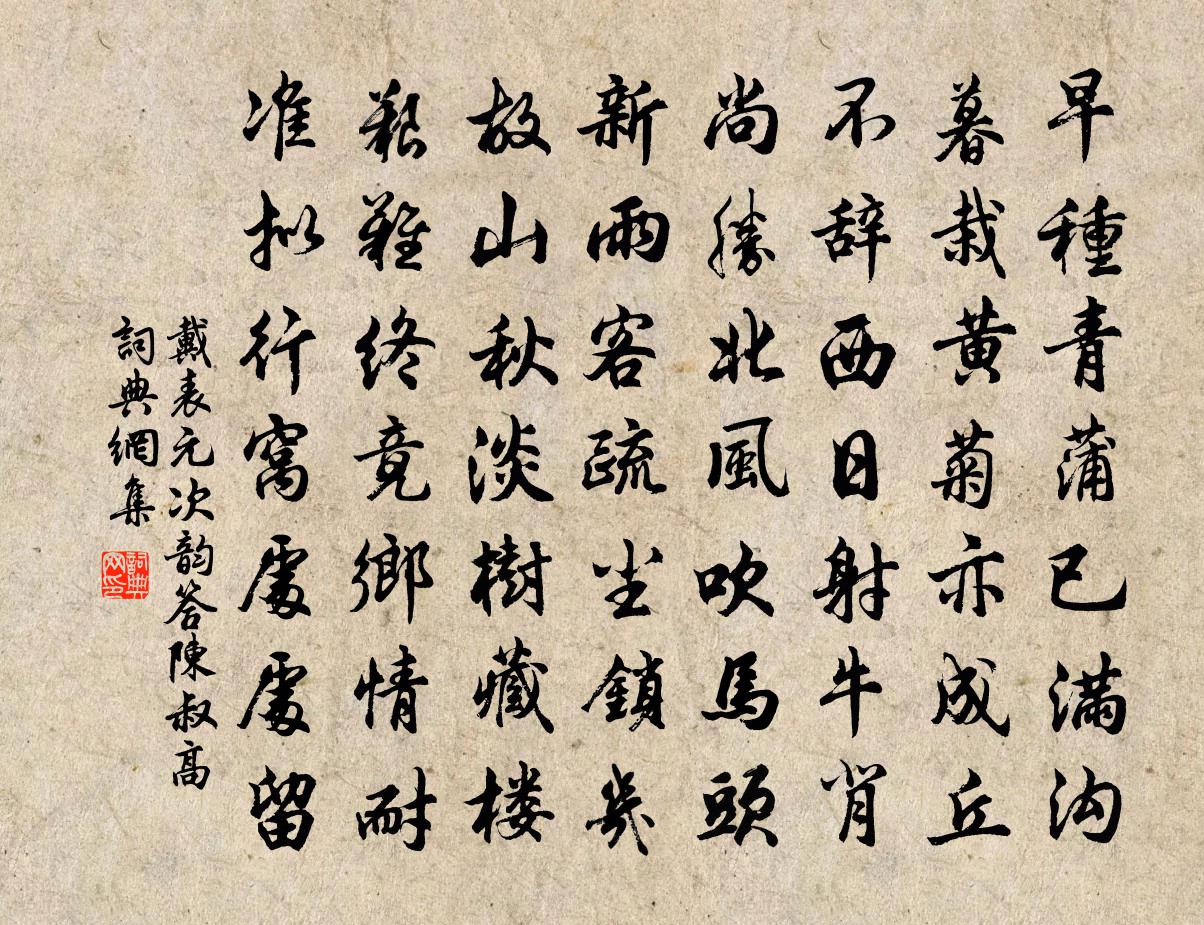 早種青蒲已滿沟
暮栽黄菊亦成丘
不辞西日射牛背
尚勝北風吹馬頭
新雨客疏尘鎖幾
故山秋淡樹藏楼
艱難终竟鄉情耐
准拟行窩處處留
戴表元次韵答陳叔高
詞典網集
詞典网印